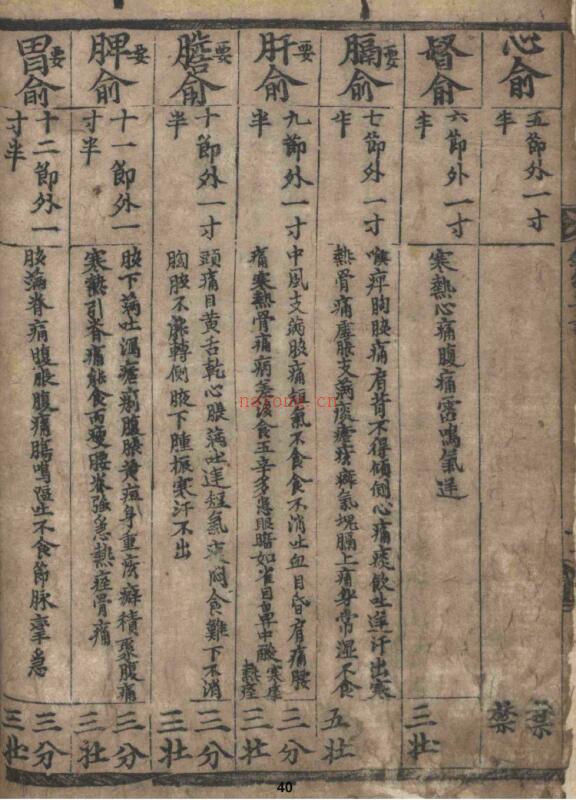 心俞
五節外一寸
半
禁
禁
督俞
六節外一寸
半
寒熱心痛腹痛雷鳴氣逆
三壯
膈俞
要
七節外一寸
半
喉痺胸脇痛肩背不得傾側心痛痰飲吐逆汗出寒
熱骨痛虛脹支滿痰瘧痃癖氣塊膈上痛身常濕不食
五壯
肝俞
要
九節外一寸
半
中風支滿脇痛短氣不食食不消吐血目昏肩痛腰
痛寒熱骨痛病差後食五辛多患眼暗如雀目鼻中酸
寒瘧
熱痙
三分
三壯
膽俞
要
十節外一寸
半
頭痛目黃舌乾心脹滿吐逆短氣痰悶食難下不消
胸脇不能轉側腋下腫振寒汗不出
三分
三壯
脾俞
要
十一節外一
寸半
脇下滿吐瀉瘧痢腹脹黃疸身重痃癖積聚腹痛
寒熱引脊痛能食而瘦腰脊強急熱痙骨痛
三分
三壯
胃俞
要
十二節外一
寸半
脇滿脊痛腹脹腹痛腸鳴嘔吐不食節脉攣急
三分
三壯
nayona.cn
40